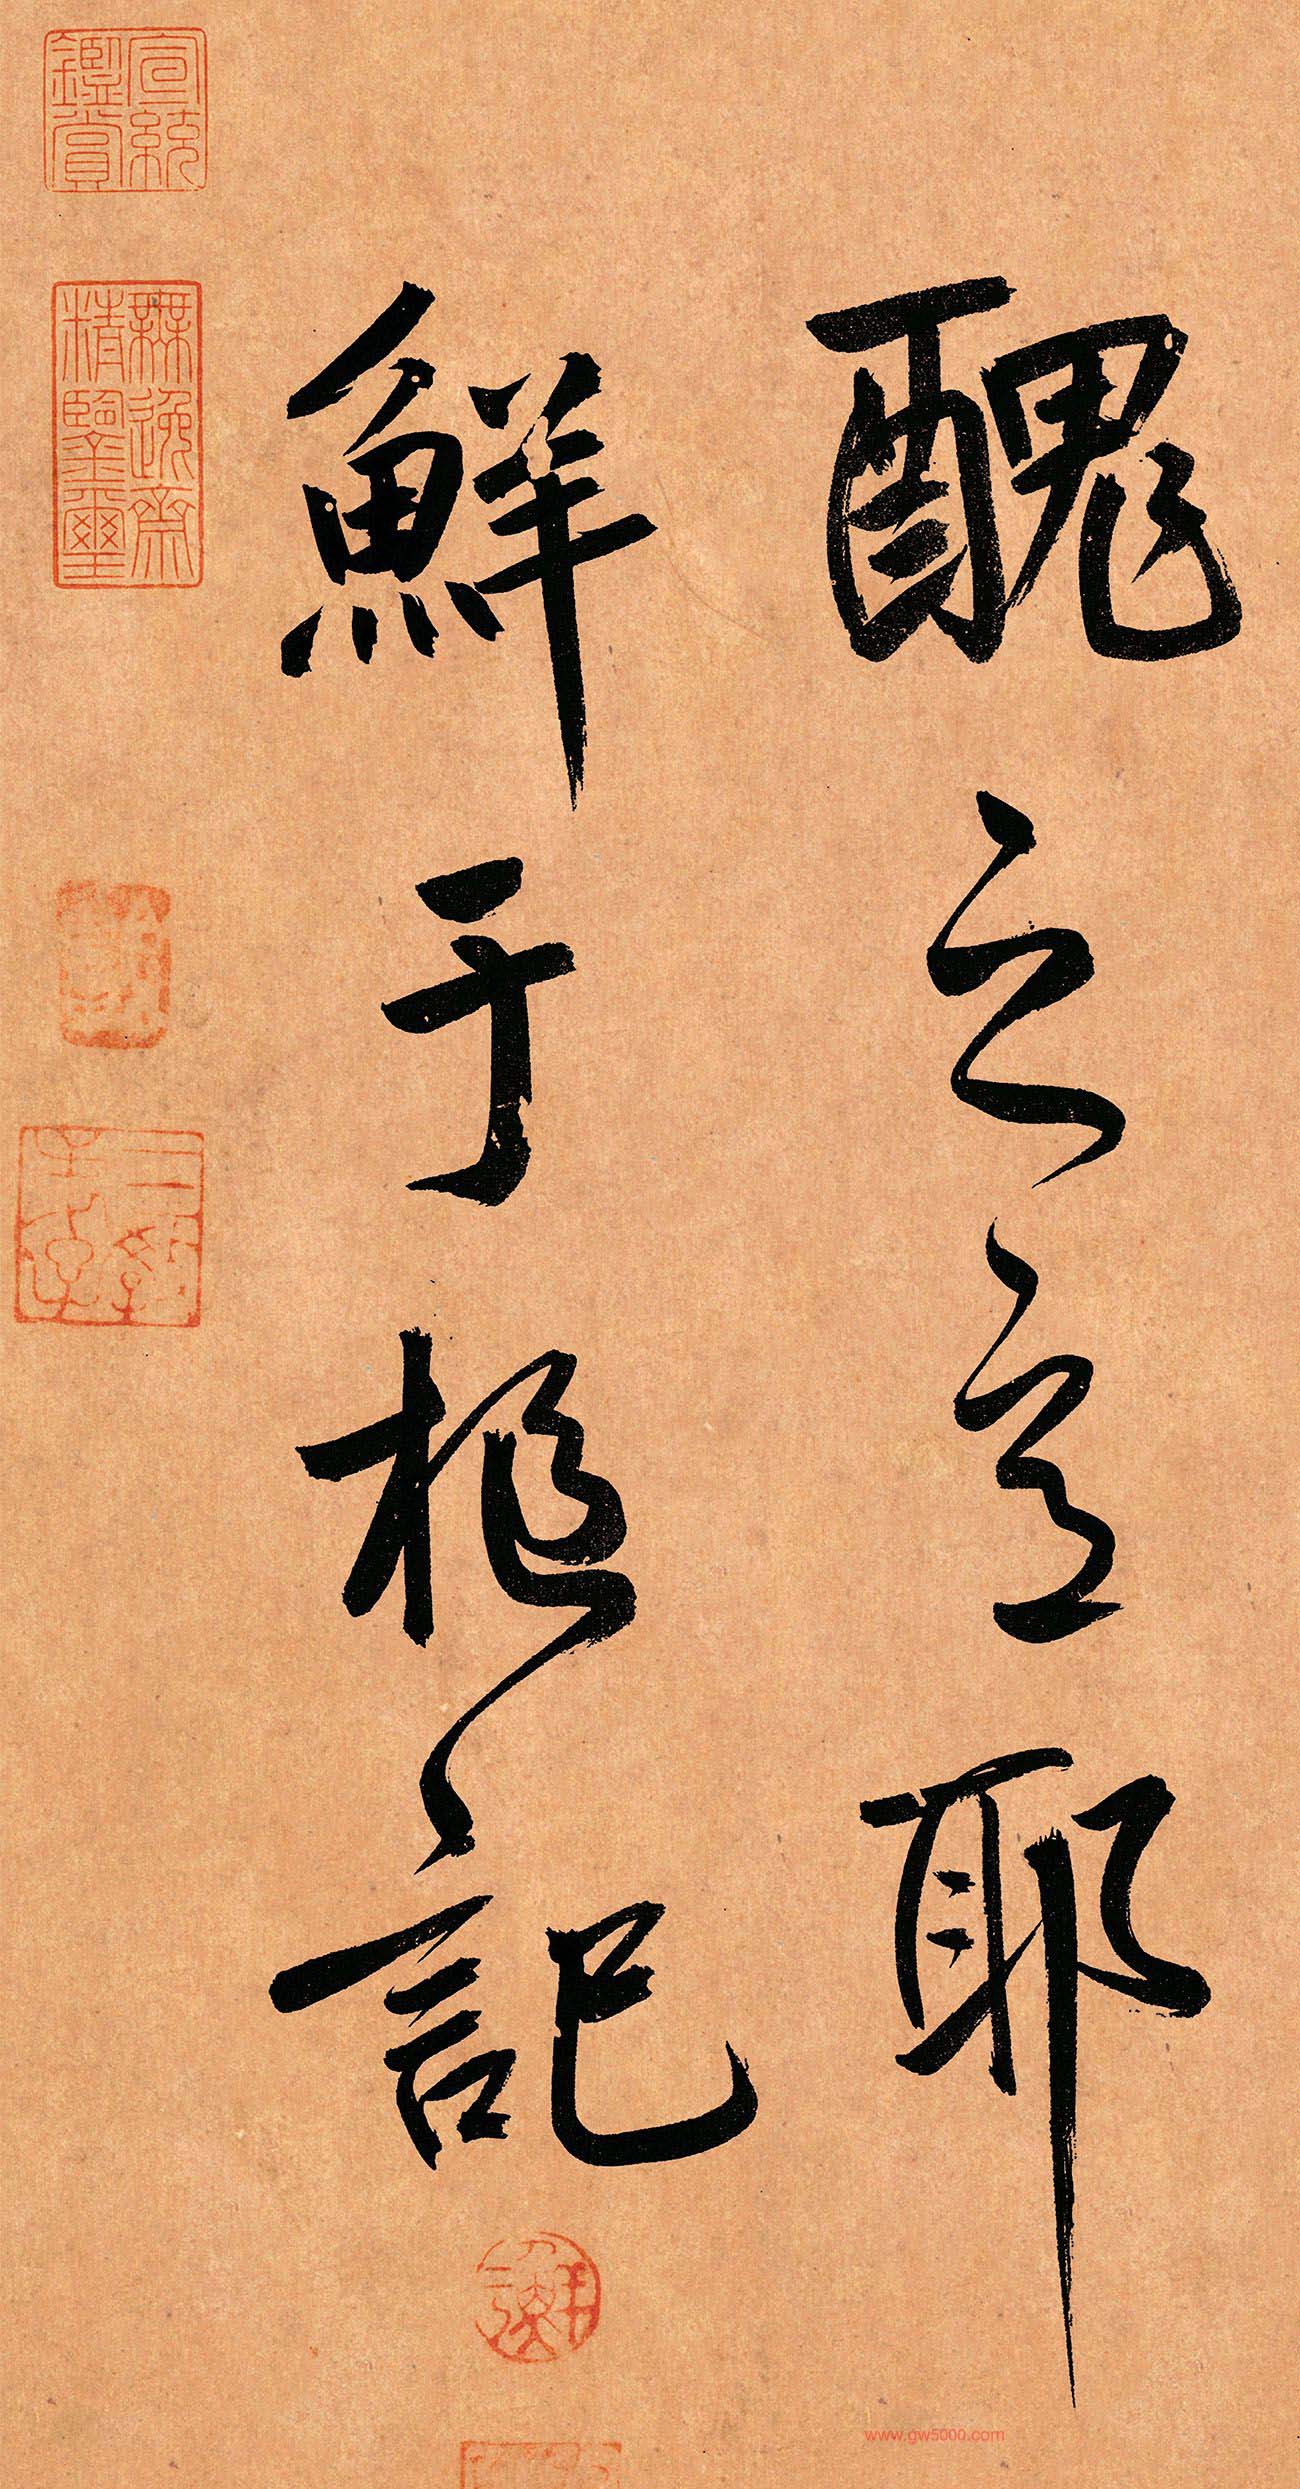 醜之意耶
鮮于樞記
宣統
鑑賞
無逸齋
精鑒璽
www.gw5000.com